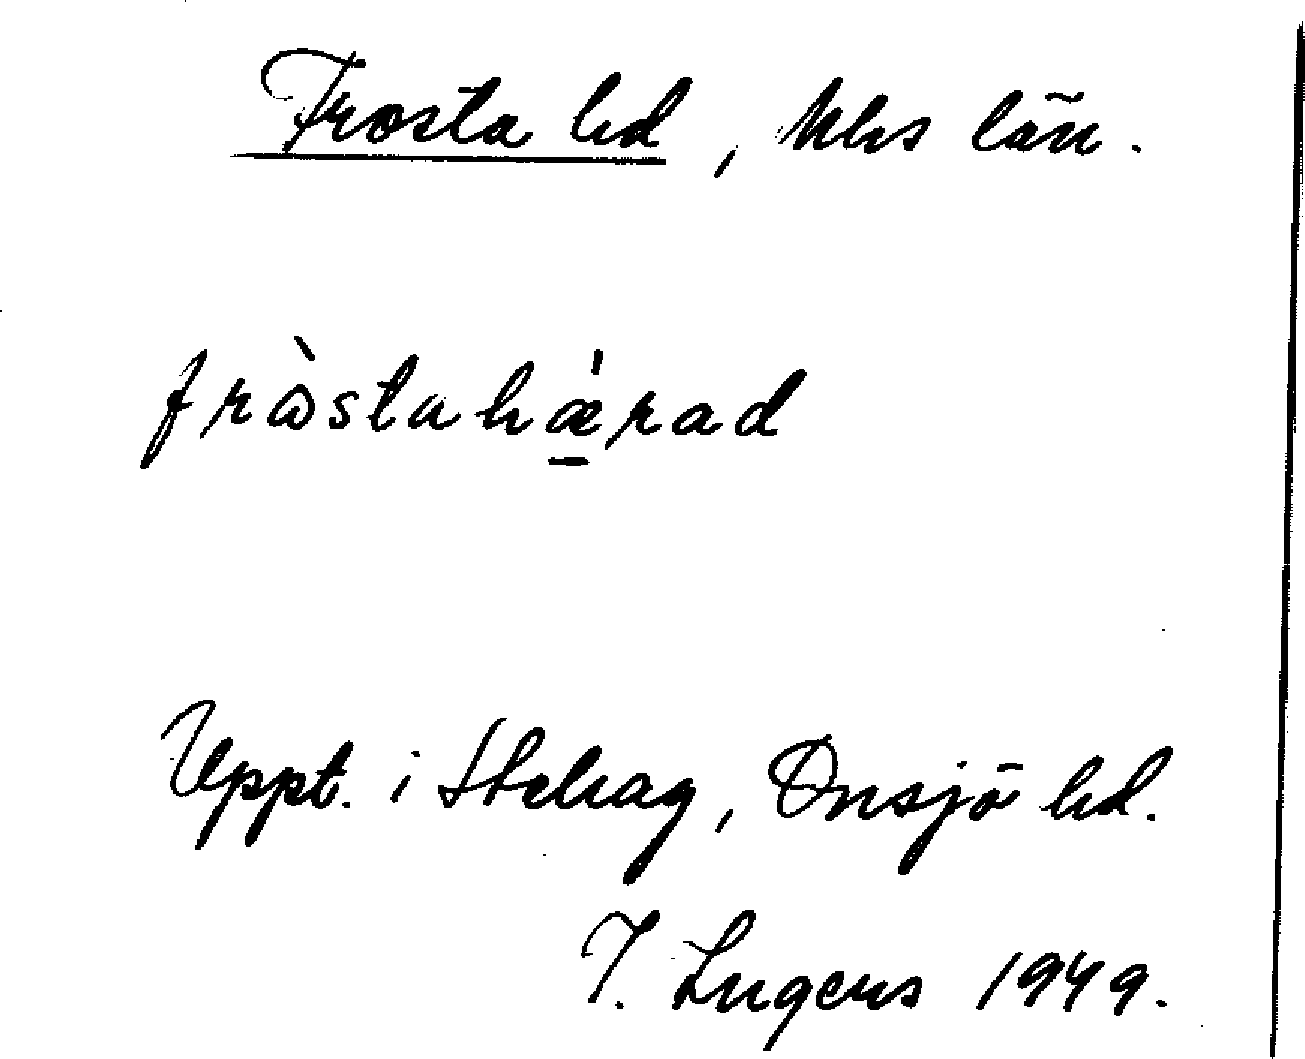 Frosta hd, Mhs län.
fròstahǽ̱rad
Uppt. i Stehag, Onsjö hd.
I. Ingers 1949.